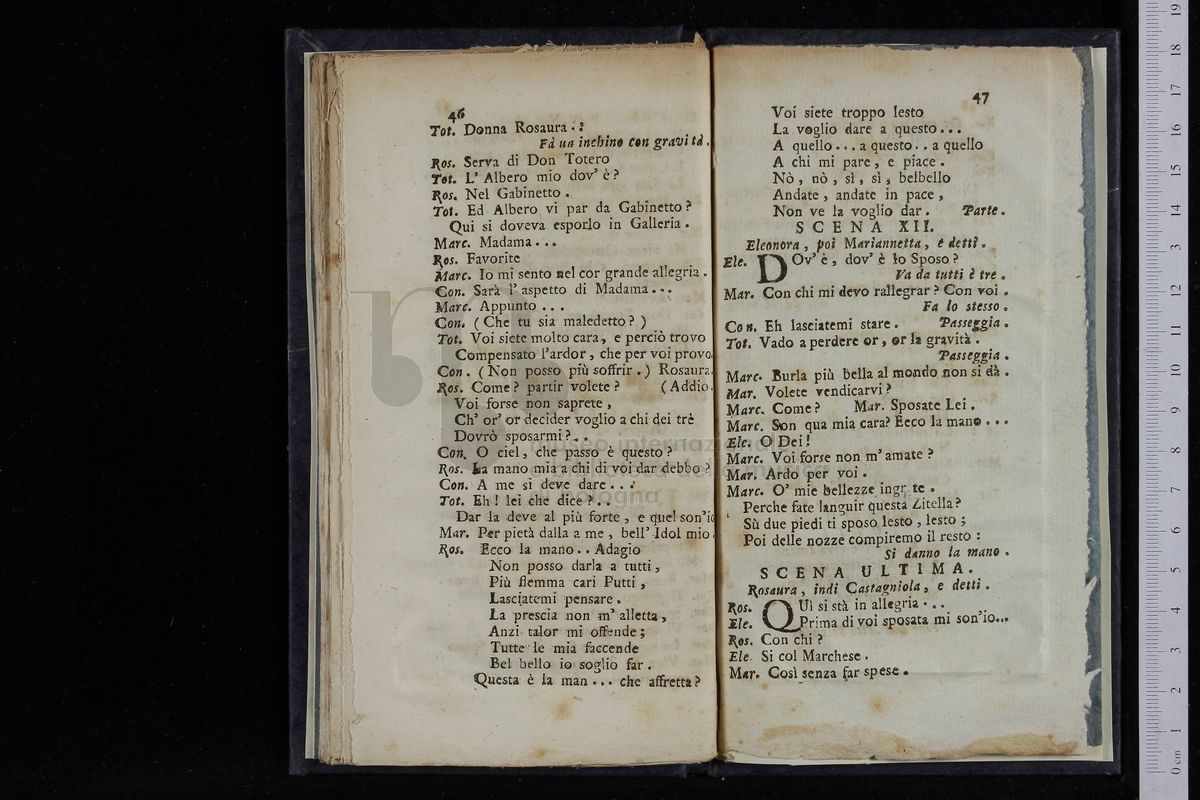 46
Tot. Donna Rosaura . :
Fà un inchino con gravità.
Ros. Serva di Don Totero
Tot. L' Albero mio dov' è ?
Ros. Nel Gabinetto .
Tot. Ed Albero vi par da Gabinetto ?
Qui si doveva esporlo in Galleria .
Marc. Madama . . .
Ros. Favorite
Marc. Io mi sento nel cor grande allegria .
Con. Sarà l' aspetto di Madama . . .
Marc. Appunto . . .
Con. ( Che tu sia maledetto ? )
Tot. Voi siete molto cara , e perciò trovo
Compensato l'ardor , che per voi provo.
Con . ( Non posso più soffrir . ) Rosaura.
Ros. Come ? partir volete ? ( Addio.
Voi forse non saprete ,
Ch' or' or decider voglio a chi dei trè
Dovrò sposarmi ? . .
Con. O ciel , che passo è questo ?
Ros. La mano mia a chi di voi dar debbo ?
Con. A me si deve dare . . .
Tot. Eh ! lei che dice ? . .
Dar la deve al più forte , e quel son'io
Mar. Per pietà dalla a me , bell' Idol mio.
Ros. Ecco la mano . . Adagio
Non posso darla a tutti ,
Più flemma cari Putti ,
Lasciatemi pensare .
La prescia non m' alletta ,
Anzi talor mi offende ;
Tutte le mia faccende
Bel bello io soglio far .
Questa è la man . . . che affretta ?
47
Voi siete troppo lesto
La voglio dare a questo . . .
A quello . . . a questo . . a quello
A chi mi pare , e piace .
Nò , nò , sì , sì , belbello
Andate , andate in pace ,
Non ve la voglio dar . Parte .
SCENA XII.
Eleonora , poi Mariannetta , e detti .
Ele. DOv' è , dov' è lo Sposo ?
Va da tutti è tre .
Mar. Con chi mi devo rallegrar ? Con voi .
Fa lo stesso .
Con. Eh lasciatemi stare . Passeggia .
Tot. Vado a perdere or , or la gravità .
Passeggia .
Marc. Burla più bella al mondo non si dà .
Mar. Volete vendicarvi ?
Marc. Come ? Mar. Sposate Lei .
Marc. Son qua mia cara ? Ecco la mano . . .
Ele. O Dei !
Marc. Voi forse non m' amate ?
Mar. Ardo per voi .
Marc. O' mie bellezze te .
Perche fate languir questa Zitella ?
Sù due piedi ti sposo lesto , lesto ;
Poi delle nozze compiremo il resto :
Si danno la mano .
SCENA ULTIMA.
Rosaura , indi Castagniola , e detti .
Ros. QUì si stà in allegria . . .
Ele. Prima di voi sposata mi son'io...
Ros. Con chi ?
Ele Si col Marchese .
Mar. Così senza far spese .
museo internazionale
della musica
bologna
0 cm 1 2 3 4 5 6 7 8 9 10 11 12 13 14 15 16 17 18 19